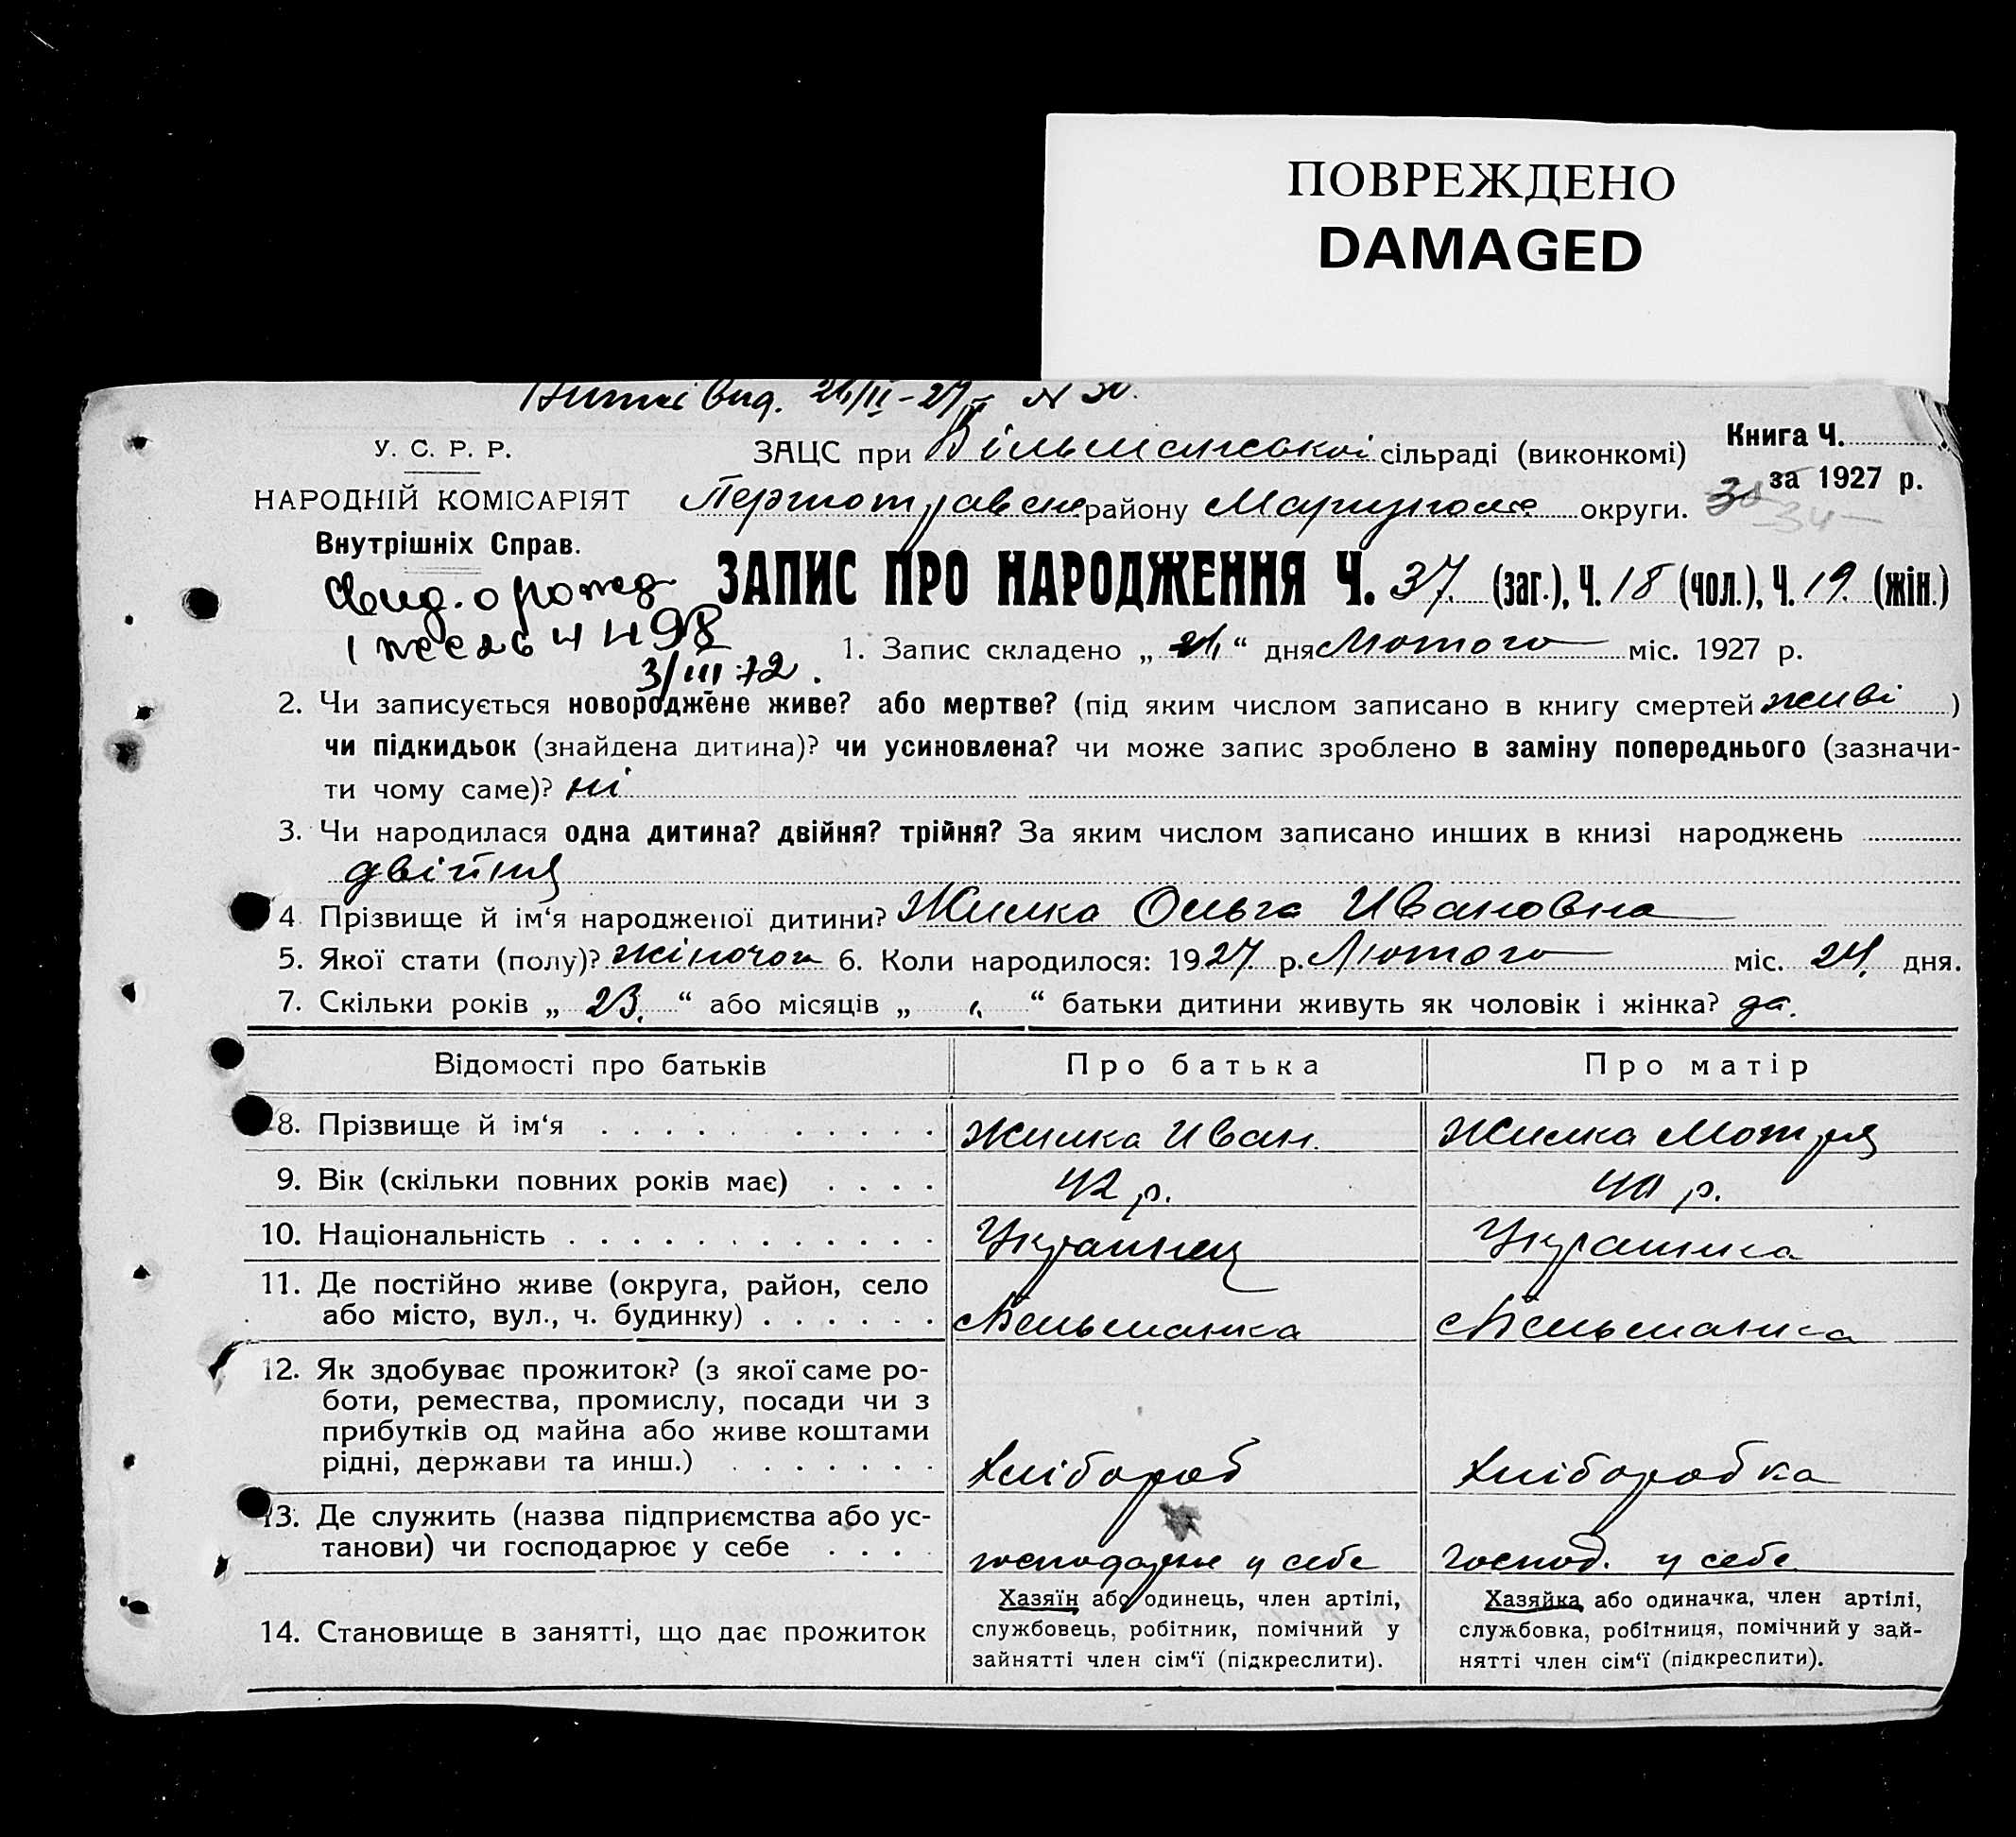 ПОВРЕЖДЕНО
DAMAGED
вид. 24/II-27 N 30.
У. С. Р. Р.
НАРОДНІЙ КОМІСАРІЯТ
Внутрішніх Справ.
Книга Ч.
за 1927 р.
ЗАЦС при Вільманської сільраді (виконкомі)
Першотравен району Маріупол округи.
34
ЗАПИС ПРО НАРОДЖЕННЯ Ч. 37. (заг.), Ч. 18 (чол.), Ч. 19. (жін.)
Свид. о рожд
3/III 72.
1. Запис складено „ 24 “ дня Лютого міс. 1927 р.
2. Чи записується новороджене живе? або мертве? (під яким числом записано в книгу смертей живі )
чи підкидьок (знайдена дитина)? чи усиновлена? чи може запис зроблено в заміну попереднього (зазначи-
ти чому саме)? ні
3. Чи народилася одна дитина? двійня? трійня? За яким числом записано инших в книзі народжень
двійня
4 Прізвище й ім‘я народженої дитини? Жилка Ольга Ивановна
5. Якої стати (полу)? жіночої 6. Коли народилося: 1927 р. Лютого міс. 24. дня.
7. Скільки років „ 23. “ або місяців „ “ батьки дитини живуть як чоловік і жінка? да.
Відомості про батьків Про батька Про матір
8. Прізвище й ім‘я Жилка Иван. Жилка Мотря
9. Вік (скільки повних років має) 42 р. 40 р.
10. Національність Украинец Украинка
11. Де постійно живе (округа, район, село
або місто, вул., ч. будинку) с Вельманка с Вельманка
12. Як здобуває прожиток? (з якої саме ро-
боти, ремества, промислу, посади чи з
прибутків од майна або живе коштами
рідні, держави та инш.) Хлібороб Хліборобка
13. Де служить (назва підприємства або ус-
танови) чи господарює у себе господарює у себе господ. у себе
14. Становище в занятті, що дає прожиток
Хазяїн або одинець, член артілі,
службовець, робітник, помічний у
зайнятті член сім‘ї (підкреслити).
Хазяйка або одиначка, член артілі,
службовка, робітниця, помічний у зай-
нятті член сім‘ї (підкреслити).